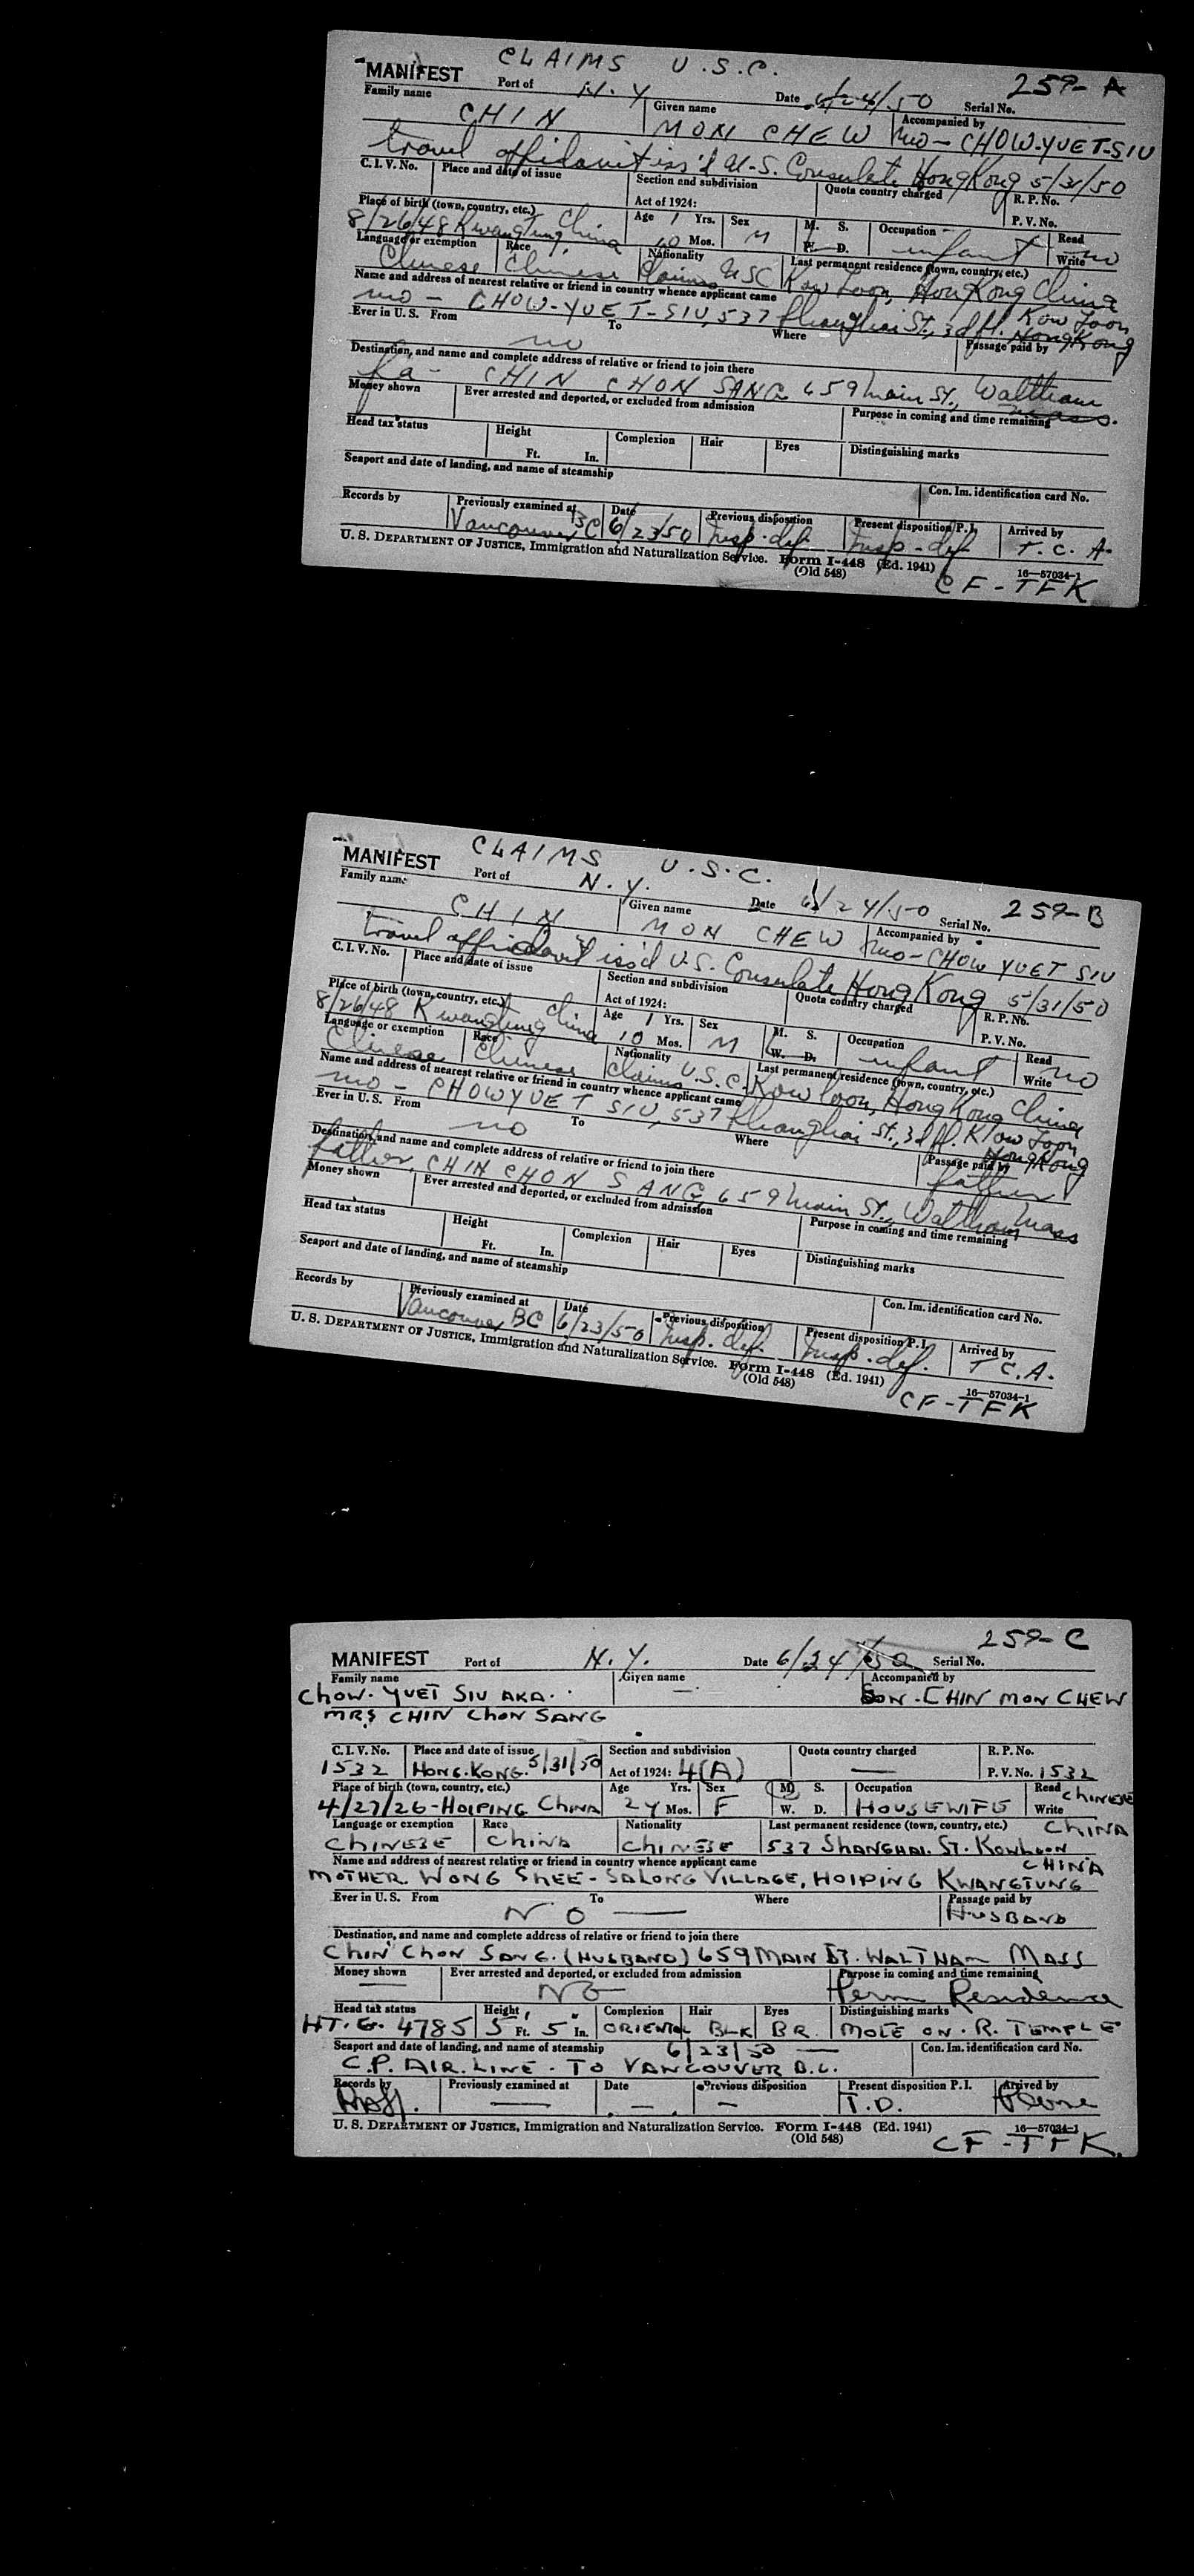 CLAIMS U.S.C.
MANIFEST Port of N.Y Date 6/24/50 Serial No. 259-A
Family name Given name Accompanied by
CHIN MON CHEW mo - CHOW-YUET-SIU
travel affidavit iss'd U.S. Consulate HongKong 5/31/50
C. I. V. No. Place and date of issue Section and subdivision Quota country charged R. P. No.
Act of 1924: P. V. No.
Place of birth (town, country, etc.) Age 1 Yrs. Sex M. S. Occupation Read
8/26/48 Kwangtung, China 10 Mos. M W. D. infant Write no
Language or exemption Race Nationality Last permanent residence (town, country, etc.)
Chinese Chinese Claims USC Kow Loon, HongKong China
Name and address of nearest relative or friend in country whence applicant came
mo - CHOW-YUET-SIU, 537 Shanghai St., 3d fl. Kow Loon HongKong
Ever in U. S. From To Where Passage paid by
no
Destination, and name and complete address of relative or friend to join there
fa - CHIN CHON SANG 659 Main St., Waltham Mass.
Money shown Ever arrested and deported, or excluded from admission Purpose in coming and time remaining
Head tax status Height Ft. In. Complexion Hair Eyes Distinguishing marks
Seaport and date of landing, and name of steamship Con. Im. identification card No.
Records by Previously examined at Date Previous disposition Present disposition P. I. Arrived by
Vancouver BC 6/23/50 insp. def. insp - def T. C. A.
U. S. DEPARTMENT OF JUSTICE, Immigration and Naturalization Service. Form I-448 (Ed. 1941) 16—57034-1
(Old 548)
CF - TFK
CLAIMS U.S.C.
MANIFEST Port of N.Y. Date 6/24/50 Serial No. 259-B
Family name Given name Accompanied by
CHIN MON CHEW mo - CHOW YUET SIU
travel affidavit iss'd U.S. Consulate HongKong 5/31/50
C. I. V. No. Place and date of issue Section and subdivision Quota country charged R. P. No.
Act of 1924: P. V. No.
Place of birth (town, country, etc.) Age 1 Yrs. Sex M. S. Occupation Read
8/26/48 Kwangtung China 10 Mos. M W. D. infant Write no
Language or exemption Race Nationality Last permanent residence (town, country, etc.)
Chinese Chinese Claims U.S.C. Kow Loon, HongKong China
Name and address of nearest relative or friend in country whence applicant came
mo - CHOW YUET SIU, 537 Shanghai St., 3d fl. Kow Loon HongKong
Ever in U. S. From To Where Passage paid by
no father
Destination, and name and complete address of relative or friend to join there
father, CHIN CHON SANG 659 Main St., Waltham Mass
Money shown Ever arrested and deported, or excluded from admission Purpose in coming and time remaining
Head tax status Height Ft. In. Complexion Hair Eyes Distinguishing marks
Seaport and date of landing, and name of steamship Con. Im. identification card No.
Records by Previously examined at Date Previous disposition Present disposition P. I. Arrived by
Vancouver BC 6/23/50 insp. def. insp. def. T C. A.
U. S. DEPARTMENT OF JUSTICE, Immigration and Naturalization Service. Form I-448 (Ed. 1941) 16—57034-1
(Old 548)
CF-TFK
259-C
MANIFEST Port of N.Y. Date 6/24/50 Serial No.
Family name Given name Accompanied by
CHOW. YUET SIU AKA. — SON - CHIN MON CHEW
MRS CHIN CHON SANG
C. I. V. No. Place and date of issue 5/31/50 Section and subdivision Quota country charged R. P. No.
1532 HONG.KONG. Act of 1924: 4(A) — P. V. No. 1532
Place of birth (town, country, etc.) Age Yrs. Sex M. S. Occupation Read CHINESE
4/27/26 - HOIPING CHINA 24 Mos. F W. D. HOUSEWIFE Write
Language or exemption Race Nationality Last permanent residence (town, country, etc.) CHINA
CHINESE CHINA CHINESE 537 SHANGHAI. ST. KOWLOON
Name and address of nearest relative or friend in country whence applicant came CHINA
MOTHER. WONG SHEE - SALONG VILLAGE, HOIPING KWANGTUNG
Ever in U. S. From To Where Passage paid by
NO — HUSBAND
Destination, and name and complete address of relative or friend to join there
CHIN CHON SANG. (HUSBAND) 659 MAIN ST. WALTHAM MASS
Money shown Ever arrested and deported, or excluded from admission Purpose in coming and time remaining
— NO Perm Residence
Head tax status Height Complexion Hair Eyes Distinguishing marks
HT. G. 4785 5' Ft. 5" In. ORIENTAL BLK BR. MOLE ON. R. TEMPLE
Seaport and date of landing, and name of steamship 6/23/50 — Con. Im. identification card No.
C.P. AIR. LINE. TO VANCOUVER B.C.
Records by Previously examined at Date Previous disposition Present disposition P. I. Arrived by
— — — T.D.
U. S. DEPARTMENT OF JUSTICE, Immigration and Naturalization Service. Form I-448 (Ed. 1941) 16—57034-1
(Old 548)
CF - TFK.